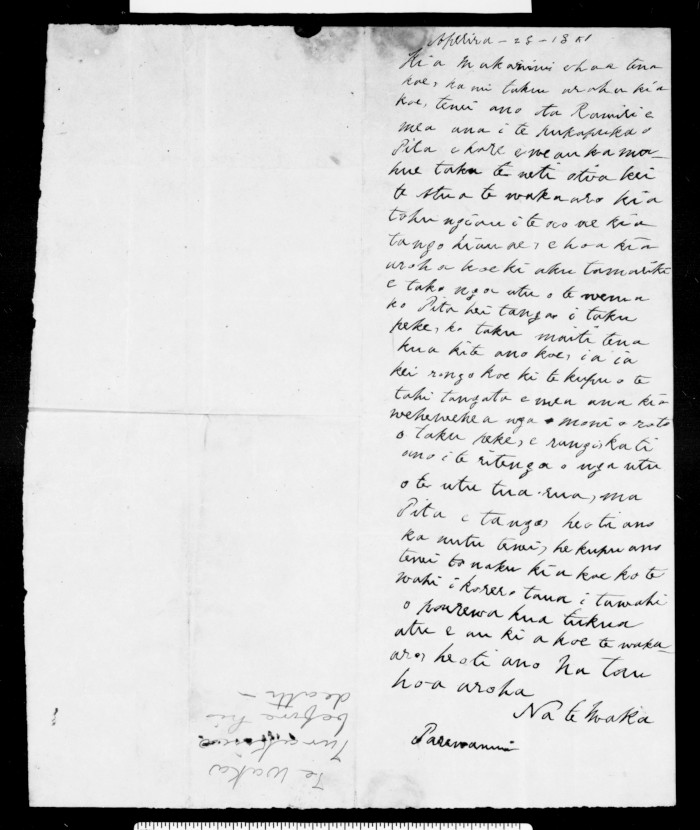 Aperira - 28 - 18
Kia Makarini ehoa tena
koe, ka nui taku aroha kia
koe, tenei ano ta Ramiri e
mea ana i te pukapuka o
Pita e kore e
hue taku te otira kei
te Atua te wakaaro kia
tohu ngia au i te ao nei kia
tango hia ae, e hoa kia
aroha koe ki aku tamariki
e taka nga utu o te wenua
ko Pita hei tango i taku
peke, ko taku maiti tena
kua kite ano koe, ia ia
kei rongo koe ki te kupu o te
tahi tangata e mea ana kia
wehewehea nga moni o roto
o taku peke, e rangi kati
ano i te ritenga o nga utu
o te utu tua-rua, ma
Pita e tango, heoti ano
ka mutu tenei, he kupu ano
tenei naku kia koe ko te
wahi i korero taua i tawahi
o pourewa kua tukua
atu e au ki a koe te waka-
aro, heoti ano Na tou
hoa aroha
Na te Waka
Parewanui
Te Waka
before his
death -